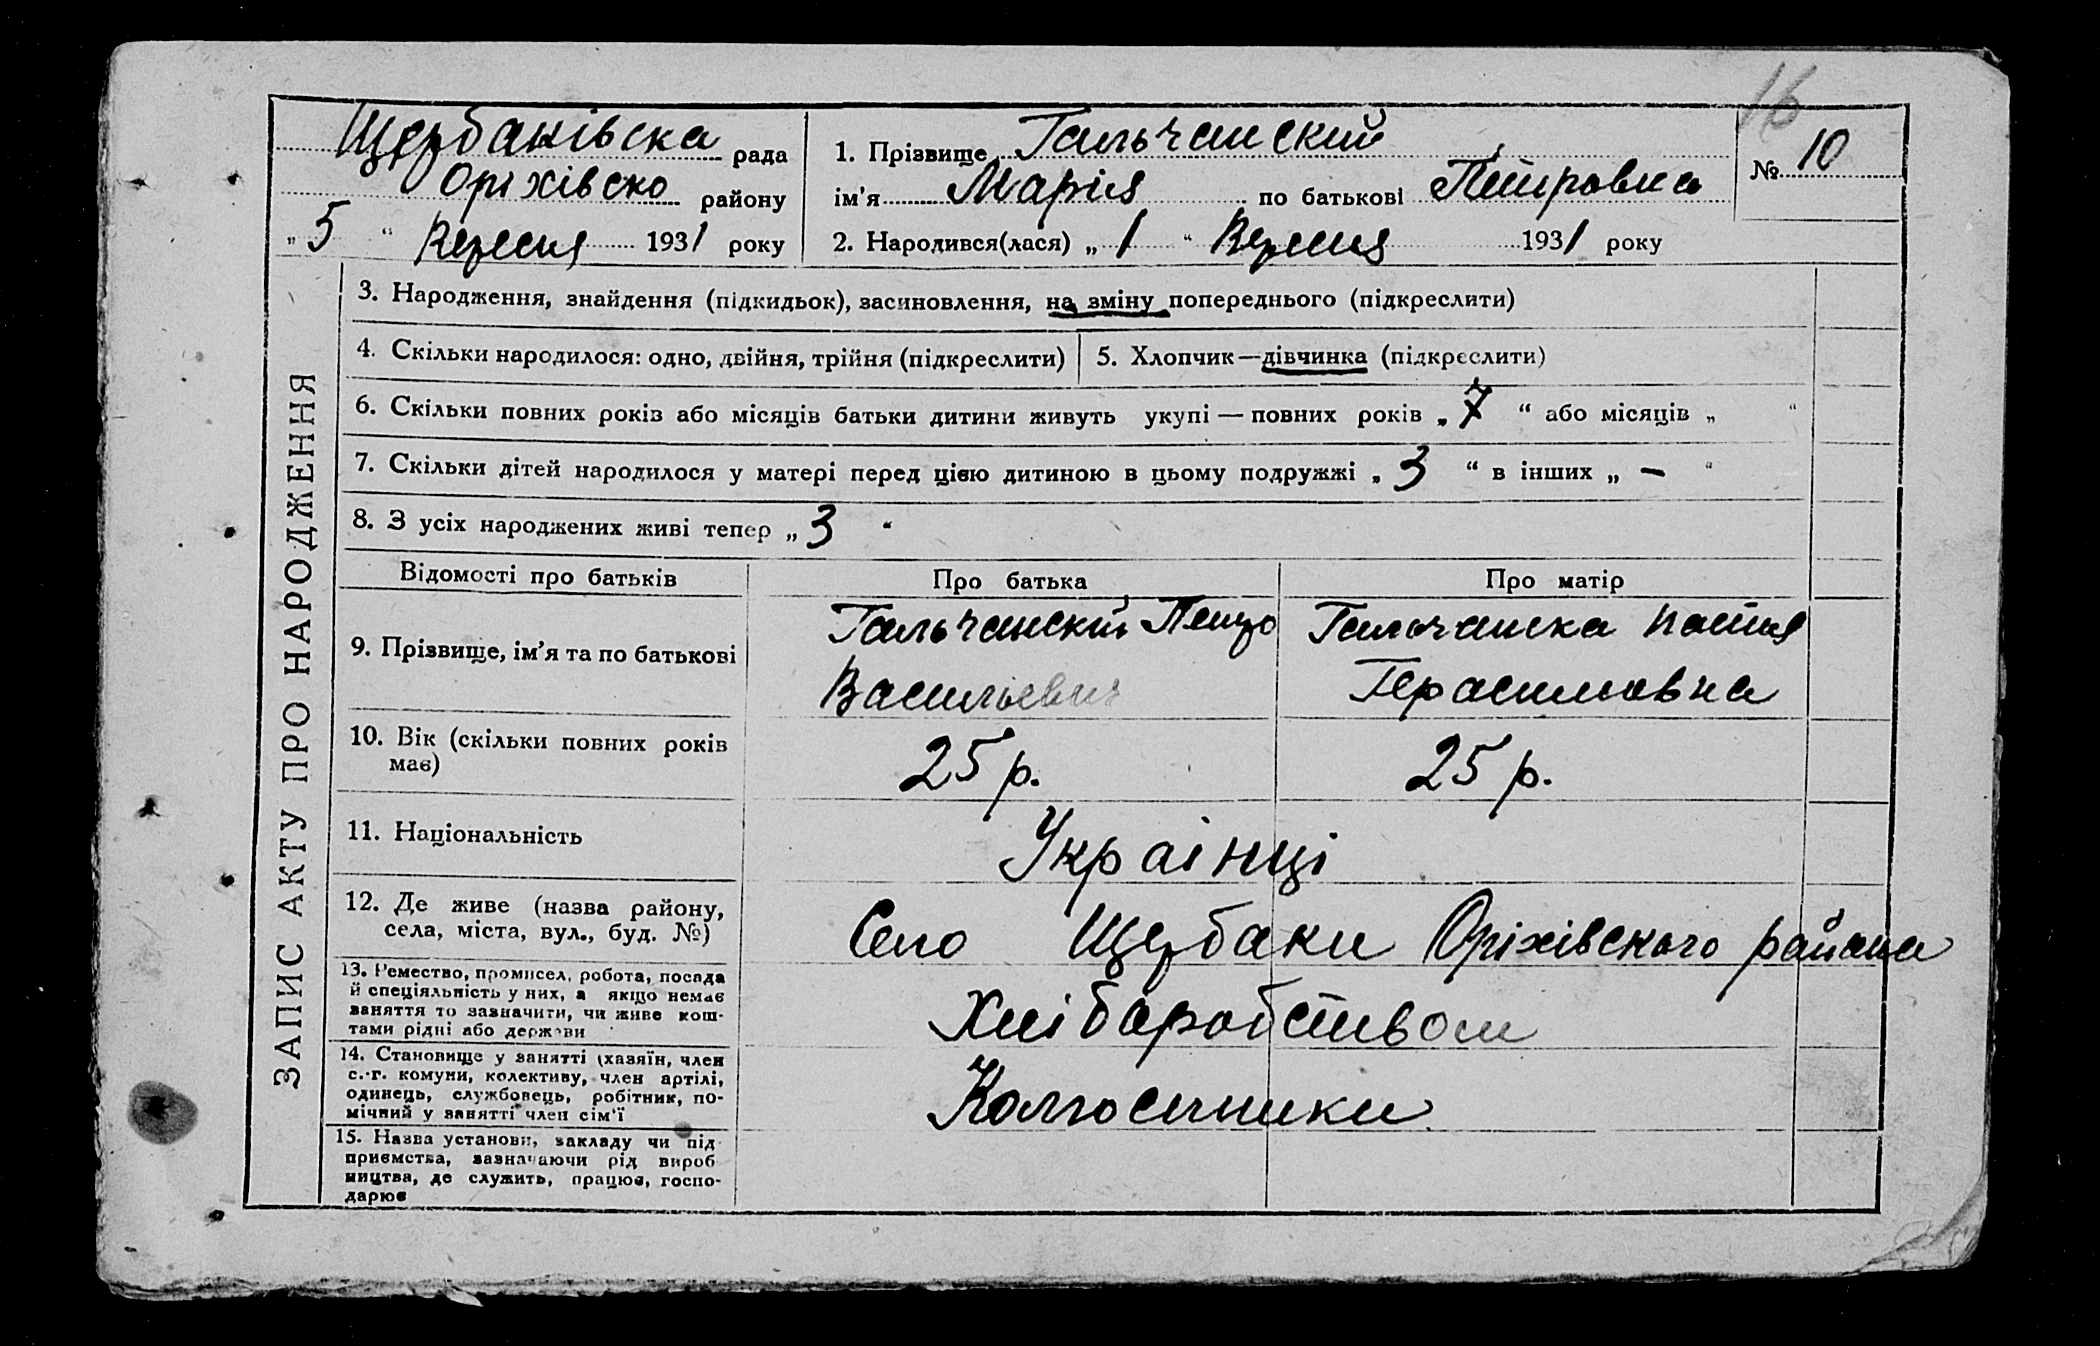 16
Щербанівска рада
Оріхівско району
„5“ Вересня 1931 року
1. Прізвище Гальчанский
ім'я Марія по батькові Петровна
2. Народився(лася) „1“ Вересня 1931 року
№ 10
ЗАПИС АКТУ ПРО НАРОДЖЕННЯ
3. Народження, знайдення (підкидьок), засиновлення, на зміну попереднього (підкреслити)
4. Скільки народилося: одно, двійня, трійня (підкреслити) 5. Хлопчик—дівчинка (підкреслити)
6. Скільки повних років або місяців батьки дитини живуть укупі — повних років „7“ або місяців „ “
7. Скільки дітей народилося у матері перед цією дитиною в цьому подружжі „3“ в інших „—“
8. З усіх народжених живі тепер „3“
Відомості про батьків Про батька Про матір
9. Прізвище, ім'я та по батькові
Гальчанский Петро
Васильевич
Гальчанска Настя
Герасимовна
10. Вік (скільки повних років
має)
25 р. 25 р.
11. Національність
Украінці
12. Де живе (назва району,
села, міста, вул., буд. №)
Село Щербаки Оріхівского района
13. Ремество, промисел, робота, посада
й спеціяльність у них, а якщо немає
заняття то зазначити, чи живе кош-
тами рідні або держави
Хліборобством
14. Становище у занятті (хазяїн, член
с.-г. комуни, колективу, член артілі,
одинець, службовець, робітник, по-
мічний у занятті член сім'ї
Колгоспники
15. Назва установи, закладу чи під
приємства, зазначаючи рід вироб
ництва, де служить, працює, госпо-
дарює